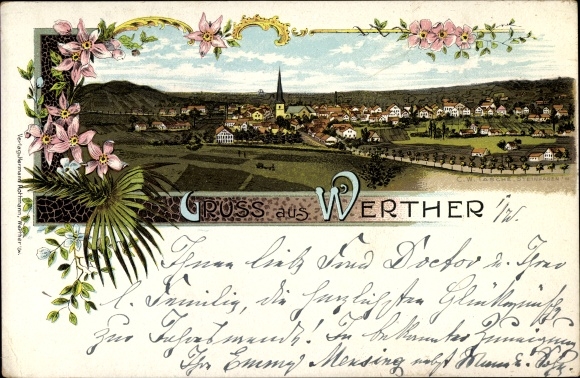 GRUSS aus WERTHER i/W.
Verlag v. Hermann Rothmann, Werther i/W.
Ihnen liebe Frau Doctor u. Ihrer
l. Familie, die herzlichsten Glückwünsche
zur Jahreswende! In bekannter Zuneigung
Ihre Emmy Mensing nebst Mann u.